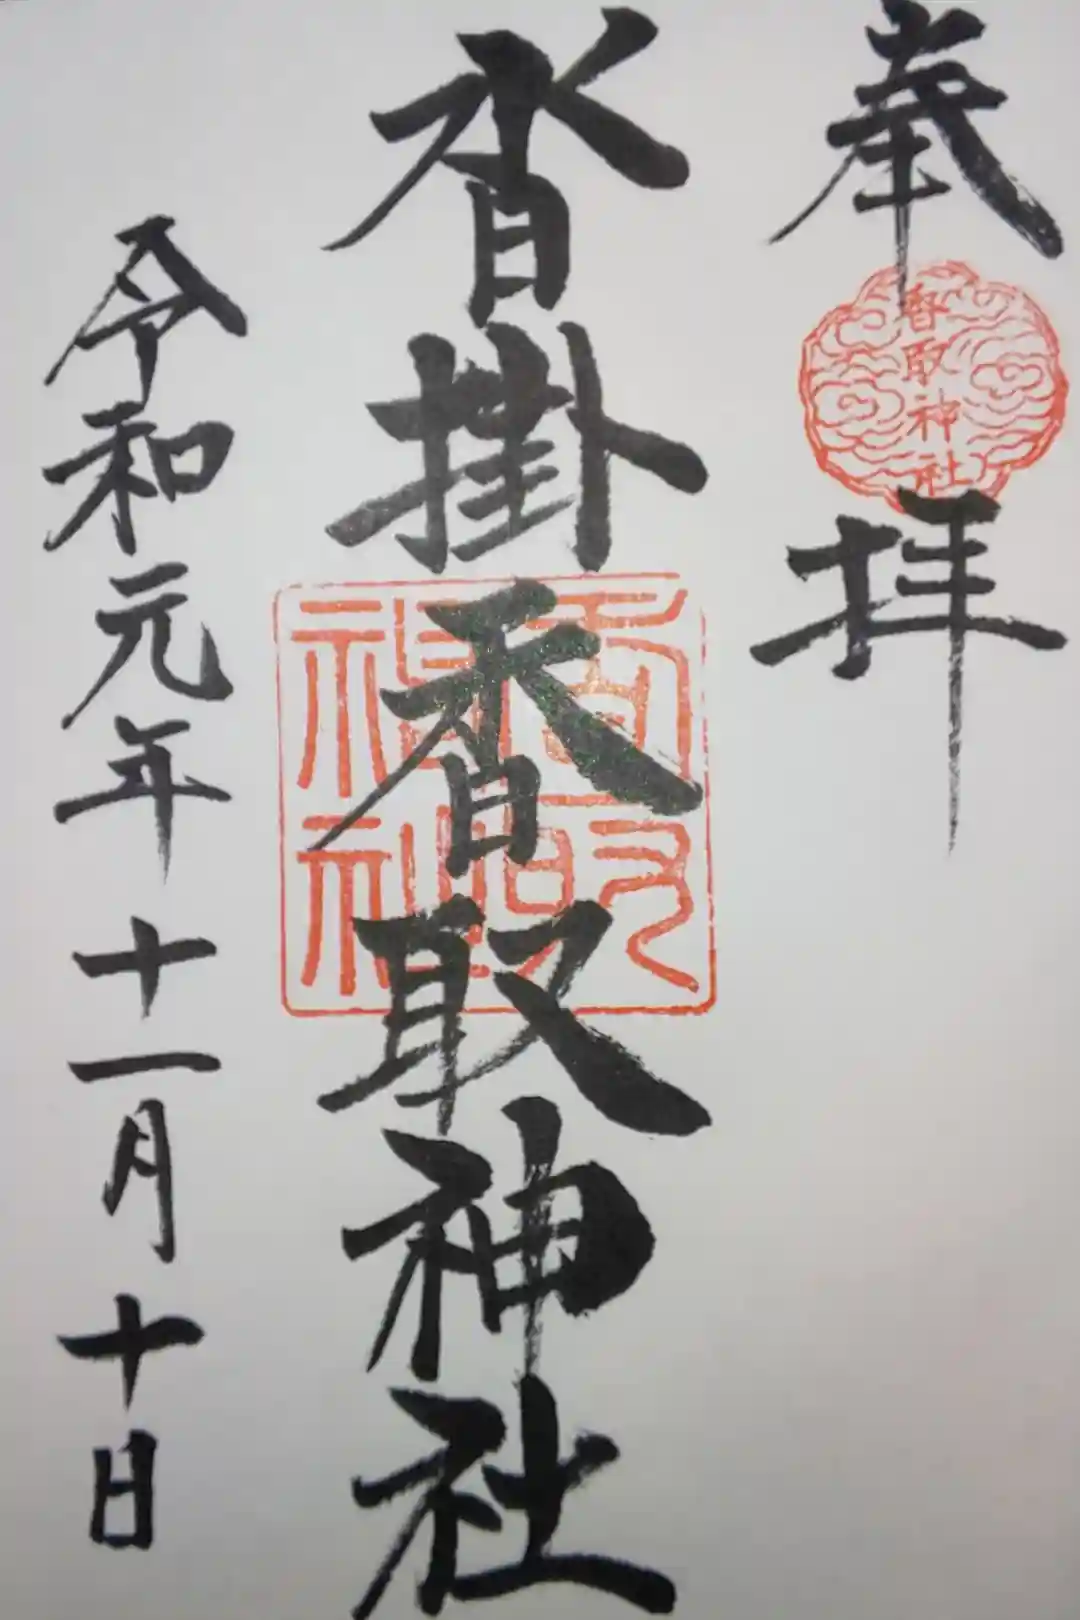 奉拝
香取神社
沓掛香取神社
香取神社
令和元年十一月十日